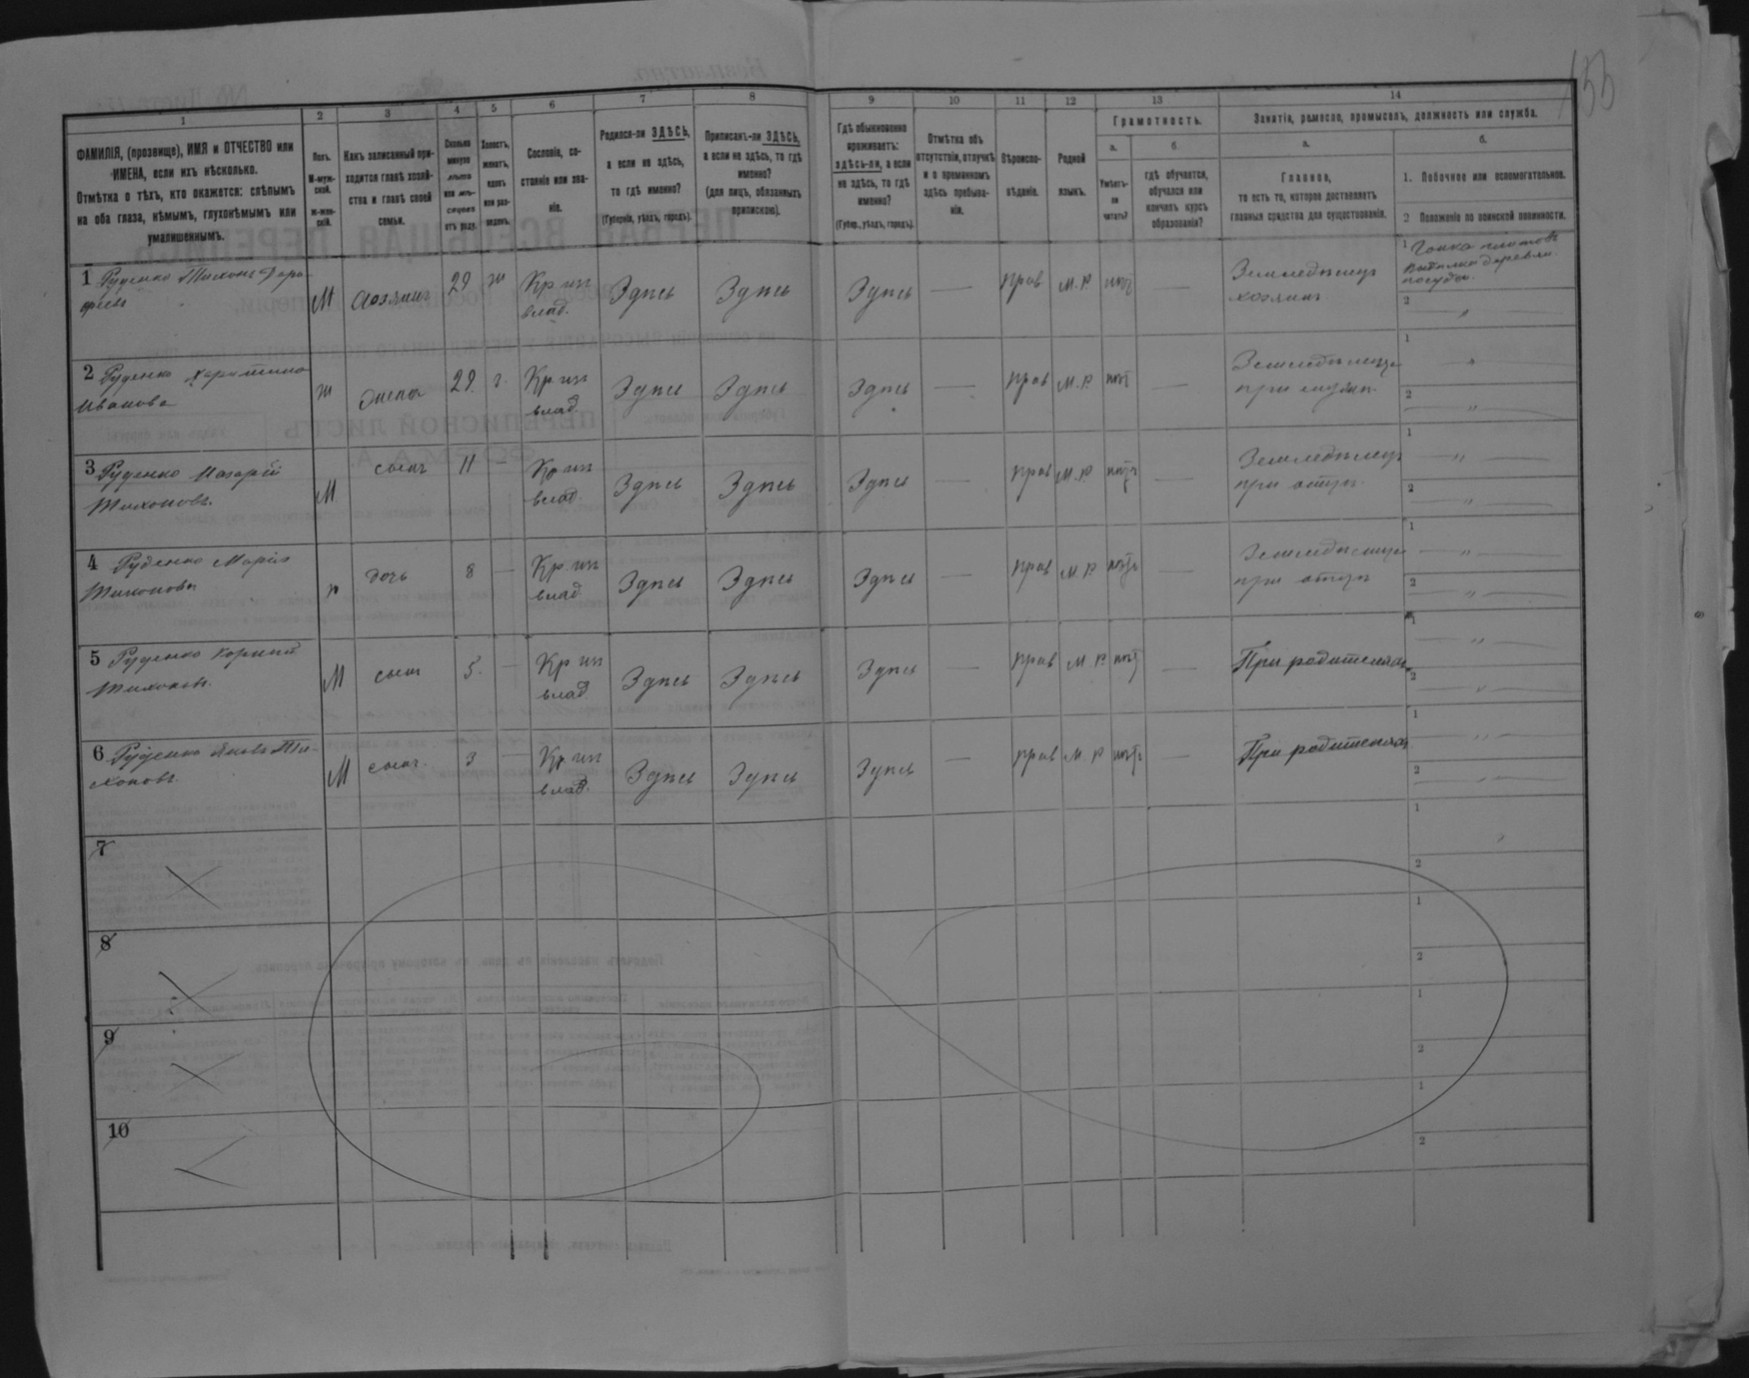 155
1 2 3 4 5 6 7 8 9 10 11 12 13 14
ФАМИЛІЯ, (прозвище), ИМЯ и ОТЧЕСТВО или
ИМЕНА, если ихъ нѣсколько.
Отмѣтка о тѣхъ, кто окажется: слѣпымъ
на оба глаза, нѣмымъ, глухонѣмымъ или
умалишеннымъ.
Полъ.
М-муж-
ской.
Ж-жен-
скій.
Какъ записанный при-
ходится главѣ хозяй-
ства и главѣ своей
семьи.
Сколько
минуло
лѣтъ
или мѣ-
сяцевъ
отъ роду.
Холостъ,
женатъ,
вдовъ
или раз-
веденъ.
Сословіе, со-
стояніе или зва-
ніе.
Родился-ли ЗДѢСЬ,
а если не здѣсь,
то гдѣ именно?
(Губернія, уѣздъ, городъ).
Приписанъ-ли ЗДѢСЬ,
а если не здѣсь, то гдѣ
именно?
(для лицъ, обязанныхъ
припискою).
Гдѣ обыкновенно
проживаетъ:
здѣсь-ли, а если
не здѣсь, то гдѣ
именно?
(Губер., уѣздъ, городъ).
Отмѣтка объ
отсутствіи, отлучкѣ
и о временномъ
здѣсь пребыва-
ніи.
Вѣроиспо-
вѣданіе.
Родной
языкъ.
Грамотность.
а.
Умѣетъ-
ли
читать?
б.
гдѣ обучается,
обучался или
кончилъ курсъ
образованія?
Занятія, ремесло, промыселъ, должность или служба.
а.
Главное,
то есть то, которое доставляетъ
главныя средства для существованія.
б.
1. Побочное или вспомогательное.
2 Положеніе по воинской повинности.
1 Руденко Тихонъ Доро-
феевъ М Хозяинъ 29 ж Кр. ип
влад. Здѣсь Здѣсь Здѣсь — прав М. Р нѣтъ Земледѣлецъ
хозяинъ
1 Гонка плотовъ
2 "
2 Руденко Харитина
Иванова ж жена 29. з. Кр ип
влад Здѣсь Здѣсь Здѣсь — прав М. Р нѣтъ — Земледѣлица
при мужѣ
1 "
2 "
3 Руденко Назарій
Тихоновъ. М сынъ 11 — Кр ип
влад. Здѣсь Здѣсь Здѣсь — прав М. Р нѣтъ — Земледѣлецъ
при отцѣ
1 "
2 "
4 Руденко Марія
Тихонова ж дочь 8 — Кр. ип
влад Здѣсь Здѣсь Здѣсь — прав М. Р нѣтъ — Земледѣлица
при отцѣ
1 "
2 "
5 Руденко Корнилій
Тихоновъ. М сынъ 5. — Кр ип
влад Здѣсь Здѣсь Здѣсь — прав М Р нѣтъ — При родителяхъ
1 "
2 "
6 Руденко Яковъ Ти-
хоновъ. М сынъ 3 — Кр. ип
влад. Здѣсь Здѣсь Здѣсь — прав М. Р нѣтъ — При родителяхъ
1 "
2 "
7
1
2
8
1
2
9
1
2
10
1
2